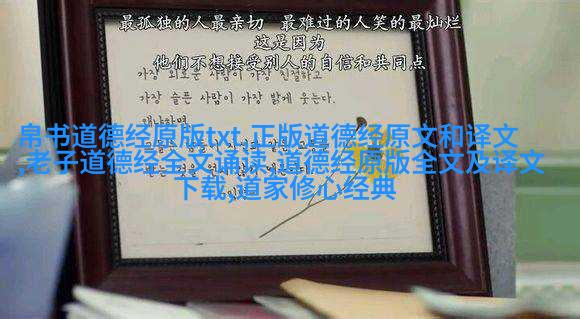 最孤独的人最亲切 最难过的人笑的最灿烂
这是因为
他们不想接受别人的自信和共同点
가장 외로운 사람이 가장 친절하고
가장 슬픈 사람이 가장 밝게 웃는다.
왜냐하면
帛书道德经原版txt,正版道德经原文和译文
,老子道德经全文诵读,道德经原版全文及译文
下载,道家修心经典